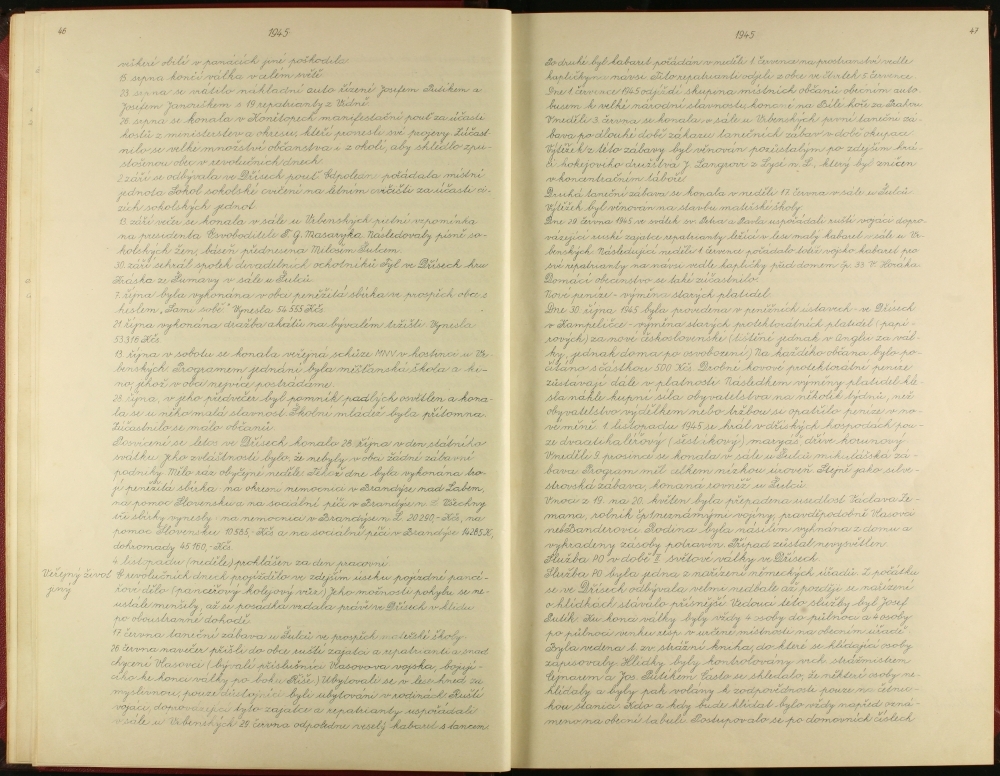 46
1945
veškeré obilí v panácích jiné poškodila
15. srpna končí válka v celém světě
23. srpna se vrátilo nákladní auto řízené Josefem Šutikem a
Josefem Janouškem s 19 repatrianty z Vídně.
26. srpna se konala v Konětopech manifestační pouť za účasti
hostů z ministerstev a okresu, kteří pronesli své projevy. Zúčast-
nilo se velké množství občanstva i z okolí, aby shlédlo zpu-
stošenou obec v revolučních dnech.
2. září se odbývala ve Dřísech pouť. Odpoledne pořádala místní
jednota Sokol sokolské cvičení na letním cvičišti za účasti ci-
zích sokolských jednot.
13. září večer se konala v sále u Vrbenských pietní vzpomínka
na presidenta Osvoboditele T. G. Masaryka. Následovaly písně so-
kolských žen, báseň přednesena Milošem Šulcem.
30. září sehrál spolek divadelních ochotníků Tyl ve Dřísech hru
Kraska ze Šumavy v sále u Šulců
7. října byla vykonána v obci peněžitá sbírka ve prospěch obcí s
heslem „Sami sobě“. Vynesla 54.555 Kčs
21. října vykonána dražba akátů na bývalém tržišti. Vynesla
53.316 Kčs
13. října v sobotu se konala veřejná schůze MNV v hostinci u Vr-
benských. Programem jednání byla měšťanská škola a ki-
no, jehož v obci nejvíce postrádáme.
28. října, v jeho předvečer byl pomník padlých osvětlen a kona-
la se u něho malá slavnost. Školní mládež byla přítomna.
Zúčastnilo se málo občanů.
Posvícení se letos ve Dřísech konalo 28. října v den státního
svátku. Jeho zvláštností bylo, že nebyly v obci žádné zábavní
podniky. Mělo ráz obyčejné neděle. Téhož dne byla vykonána tro-
jí peněžitá sbírka: na okresní nemocnici v Brandýse nad Labem,
na pomoc Slovensku a na sociální péči v Brandýse n. L. Všechny
tři sbírky vynesly: na nemocnici v Brandýse n. L. 20.290,- Kčs, na
pomoc Slovensku 10.585,- Kčs a na sociální péči v Brandýse 14.285 K,
dohromady 45.160,- Kčs.
4. listopadu (neděle) prohlášen za den pracovní.
Veřejný život
jiný
V revolučních dnech projíždělo ve zdejším úseku pojízdné pancé-
řové dělo (pancéřový kolejový vůz). Jeho možnosti pohybu se ne-
ustále menšily, až se posádka vzdala právě ve Dřísech v klidu
po oboustranné dohodě.
17. června taneční zábava u Šulců ve prospěch mateřské školy.
28. června navečer přišli do obce ruští zajatci a repatrianti a snad
chycení Vlasovci (bývalí příslušníci Vlasovova vojska, bojují-
cího ke konci války po boku Říše). Ubytovali se v lese hned za
myslivnou, pouze důstojníci byli ubytováni v rodinách. Ruští
vojáci, doprovázející tyto zajatce a repatrianty uspořádali
v sále u Vrbenských 29. června odpoledne veselý kabaret s tancem.
1945
47
Podruhé byl kabaret pořádán v neděli 1. července na prostranství vedle
kapličky na návsi. Tito repatrianti odjeli z obce ve čtvrtek 5. července.
Dne 1. července 1945 odjíždí skupina místních občanů obecním auto-
busem k velké národní slavnosti, konané na Bílé hoře za Prahou.
V neděli 3. června se konala v sále u Vrbenských první taneční zá-
bava po dlouhé době zákazu tanečních zábav v době okupace.
Výtěžek z této zábavy byl věnován pozůstalým po zdejším hrá-
či hokejového družstva J. Langrovi z Lysé n. L., který byl zničen
v koncentračním táboře.
Druhá taneční zábava se konala v neděli 17. června v sále u Šulců.
Výtěžek byl věnován na stavbu mateřské školy.
Dne 29. června 1945 ve svátek sv. Petra a Pavla uspořádali ruští vojáci dopro-
vázející ruské zajatce repatrianty ležící v lese malý kabaret v sále u Vr-
benských. Následující neděli 1. července pořádalo totéž vojsko kabaret pro
své repatrianty na návsi vedle kapličky před domem čp. 33 V. Horáka.
Domácí obecenstvo se také zúčastnilo.
Nové peníze - výměna starých platidel.
Dne 30. října 1945 byla provedena v peněžních ústavech ve Dřísech
v Kampeličce - výměna starých protektorátních platidel (papí-
rových) za nové československé (tištěné jednak v Anglii za vál-
ky, jednak doma po osvobození). Na každého občana bylo po-
čítáno s částkou 500 Kčs. Drobné kovové protektorátní peníze
zůstávají dále v platnosti. Následkem výměny platidel kle-
sla náhle kupní síla obyvatelstva na několik týdnů, než
obyvatelstvo výdělkem nebo tržbou si opatřilo peníze v no-
vé měně. 1. listopadu 1945 se hrál v dříských hospodách pou-
ze dvacetihaléřový (šestákový) maryáš, dříve korunový.
V neděli 9. prosince se konala v sále u Šulců mikulášská zá-
bava. Program měl celkem nízkou úroveň. Stejně jako silve-
strovská zábava, konaná rovněž u Šulců.
V noci z 19. na 20. květen byla přepadena usedlost Václava Ze-
mana, rolník čp. neznámými vojíny, pravděpodobně Vlasovci
neb Banderovci. Rodina byla násilím vyhnána z domu a
vykradeny zásoby potravin. Případ zůstal nevysvětlen.
Služba PO v době II. světové války ve Dřísech.
Služba PO byla jedna z nařízení německých úřadů. Z počátku
se ve Dřísech odbývala velmi nedbale, až později se nařízení
o hlídkách stávalo přísnější. Vedoucí této služby byl Josef
Šutik. Ku konci války byly vždy 4 osoby do půlnoci a 4 osoby
po půlnoci venku resp. v určené místnosti na obecním úřadě.
Byla vedena t. zv. strážní kniha, do které se hlídající osoby
zapisovaly. Hlídky byly kontrolovány vrch. strážmistrem
Cejnarem a Jos. Šutikem. Často se shledalo, že některé osoby ne-
hlídaly a byly pak volány k zodpovědnosti pouze na četnic-
kou stanici. Kdo a kdy bude hlídat bylo vždy napřed ozná-
meno na obecní tabuli. Postupovalo se po domovních číslech